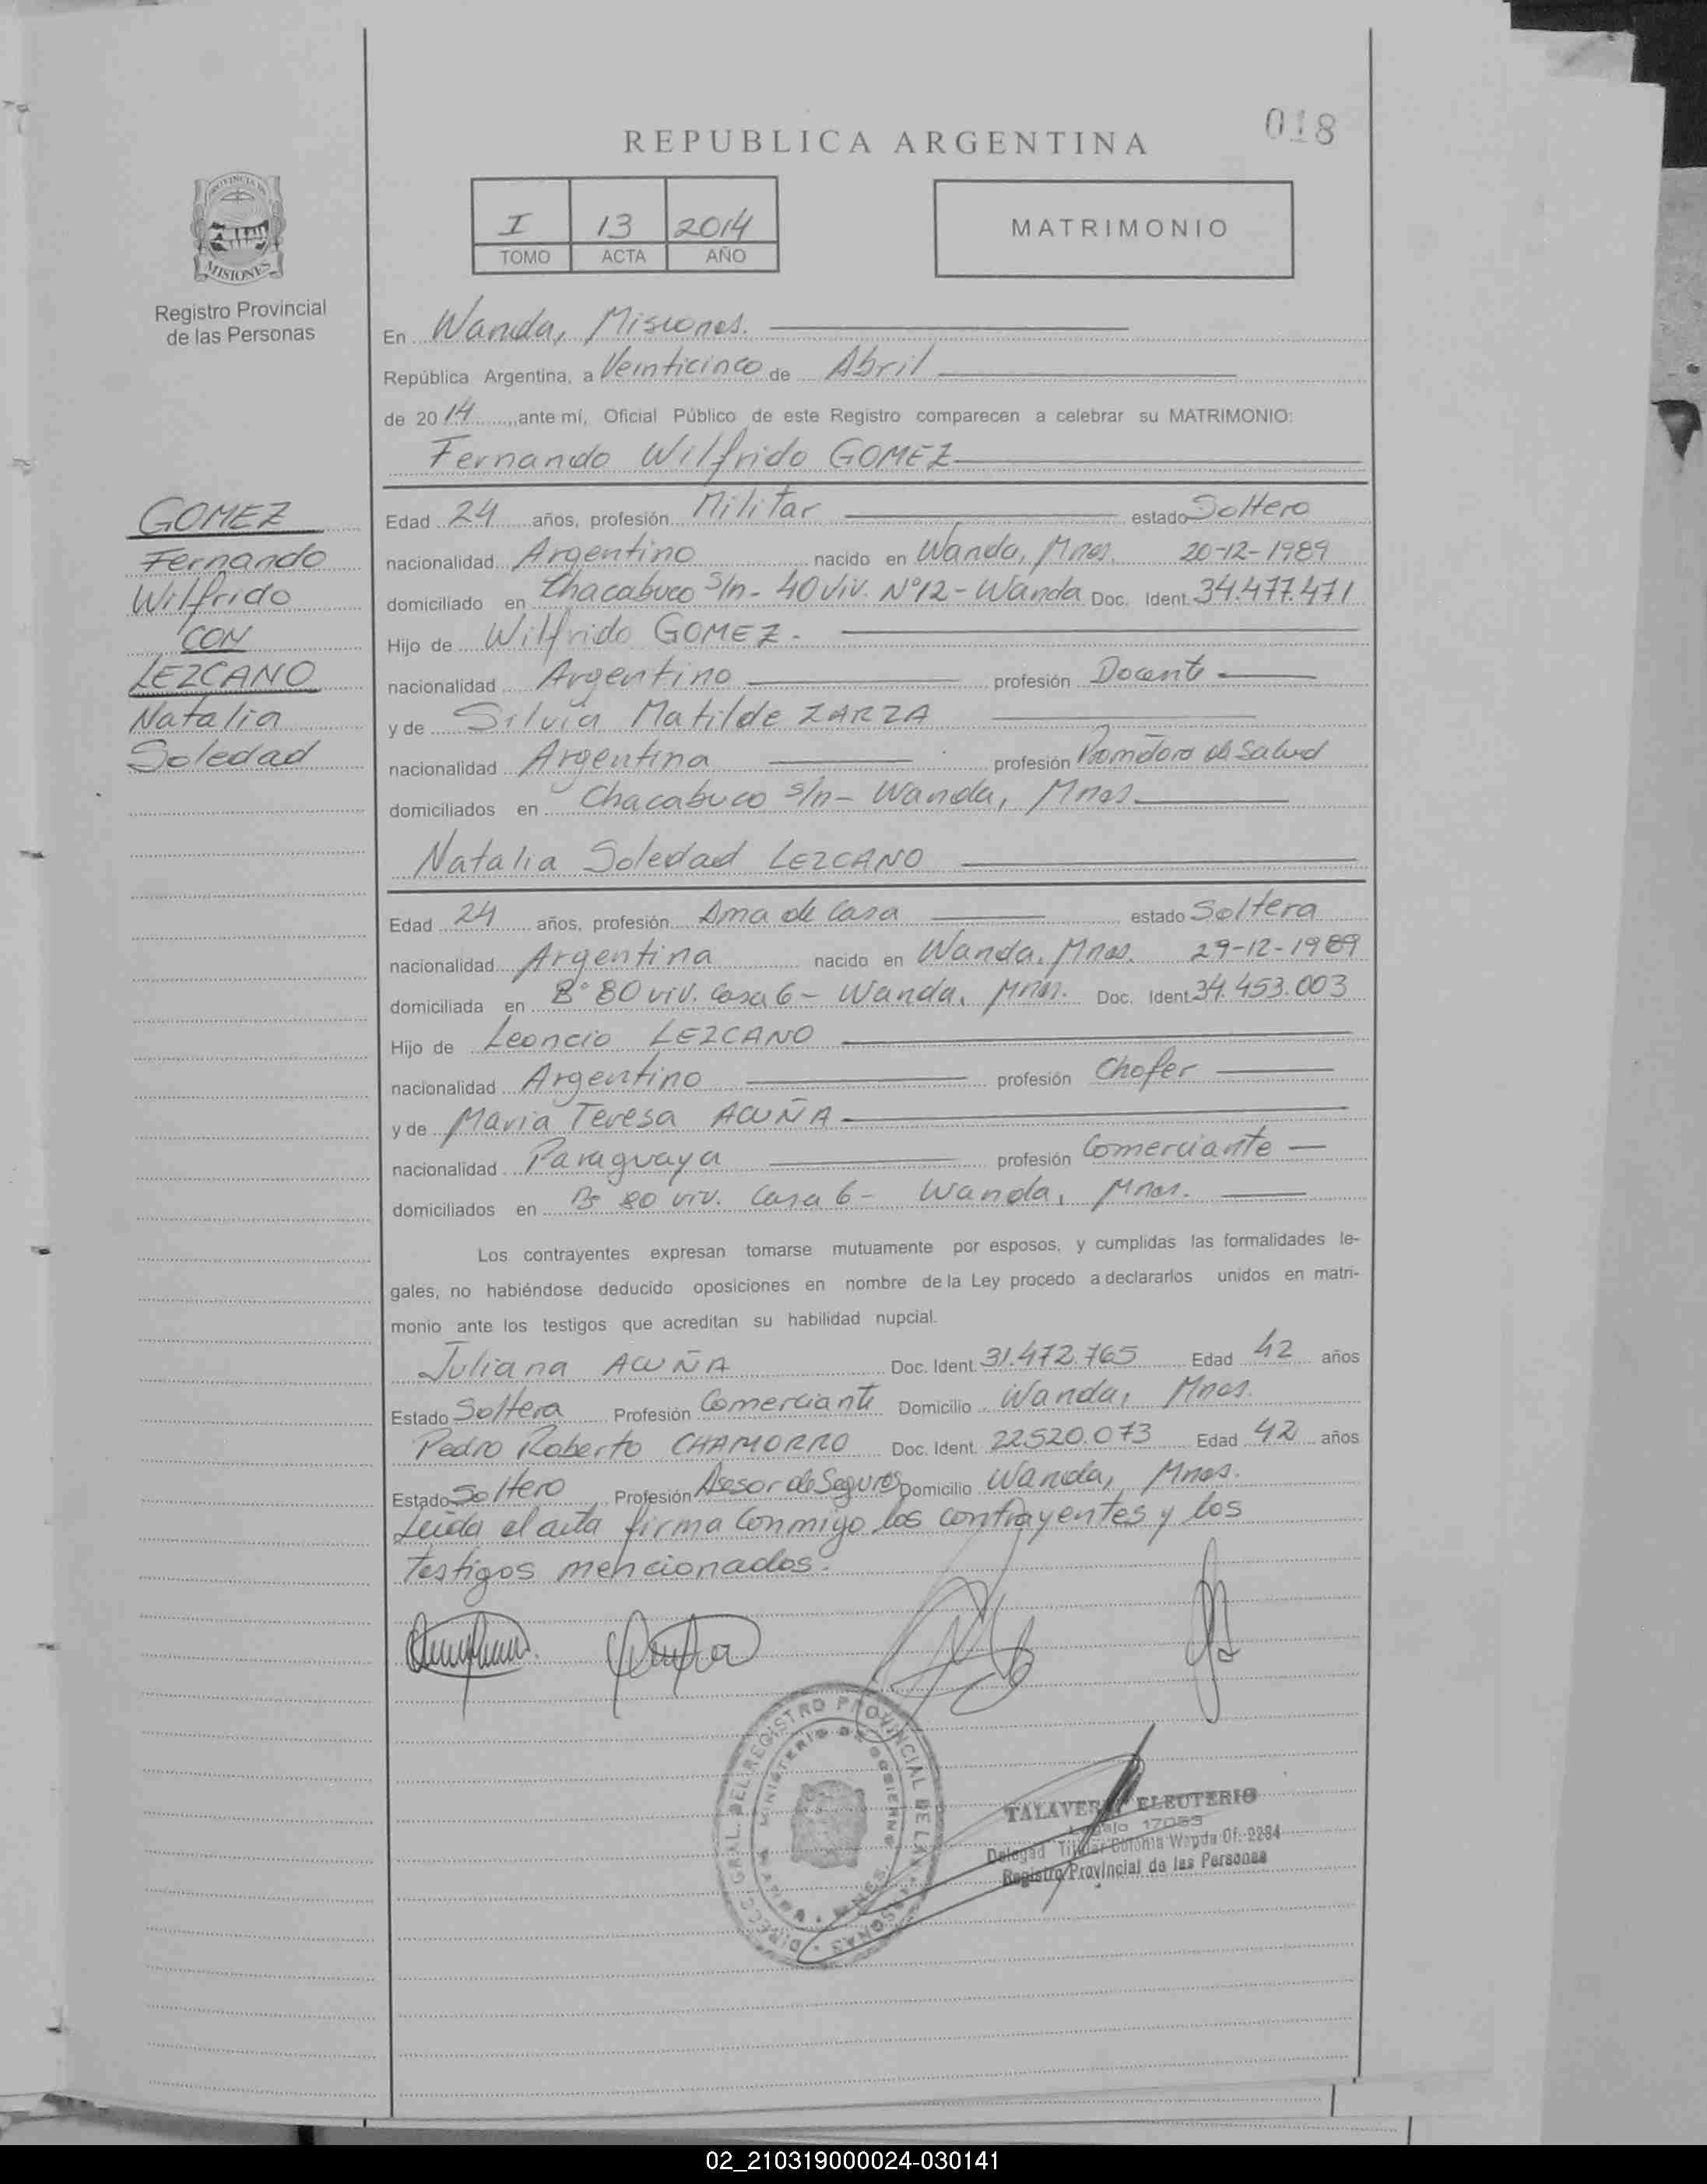 018
REPUBLICA ARGENTINA
I 13 2014
TOMO ACTA AÑO
MATRIMONIO
PROVINCIA DE
MISIONES
Registro Provincial
de las Personas
En Wanda, Misiones.
República Argentina, a Veinticinco de Abril
de 2014, ante mí, Oficial Público de este Registro comparecen a celebrar su MATRIMONIO:
Fernando Wilfrido GOMEZ
GOMEZ
Fernando
Wilfrido
CON
LEZCANO
Natalia
Soledad
Edad 24 años, profesión Militar estado Soltero
nacionalidad Argentino nacido en Wanda, Mnes. 20-12-1989
domiciliado en Chacabuco s/n - 40 viv. Nº12 - Wanda Doc. Ident. 34.477.471
Hijo de Wilfrido GOMEZ.
nacionalidad Argentino profesión Docente
y de Silvia Matilde ZARZA
nacionalidad Argentina profesión Promotora de Salud
domiciliados en Chacabuco s/n - Wanda, Mnes.
Natalia Soledad LEZCANO
Edad 24 años, profesión Ama de Casa estado Soltera
nacionalidad Argentina nacido en Wanda, Mnes. 29-12-1989
domiciliada en Bº 80 viv. Casa 6 - Wanda, Mnes. Doc. Ident. 34.453.003
Hijo de Leoncio LEZCANO
nacionalidad Argentino profesión Chofer
y de Maria Teresa ACUÑA
nacionalidad Paraguaya profesión Comerciante
domiciliados en Bº 80 viv. Casa 6 - Wanda, Mnes.
Los contrayentes expresan tomarse mutuamente por esposos, y cumplidas las formalidades le-
gales, no habiéndose deducido oposiciones en nombre de la Ley procedo a declararlos unidos en matri-
monio ante los testigos que acreditan su habilidad nupcial.
Juliana ACUÑA Doc. Ident. 31.472.765 Edad 42 años
Estado Soltera Profesión Comerciante Domicilio Wanda, Mnes.
Pedro Roberto CHAMORRO Doc. Ident. 22.520.073 Edad 42 años
Estado Soltero Profesión Asesor de Seguros Domicilio Wanda, Mnes.
Leida el acta firma Conmigo los contrayentes y los
testigos mencionados.
DIRECC. GRAL. DEL REGISTRO PROVINCIAL DE LAS PERSONAS
MINISTERIO DE GOBIERNO
MNES.
TALAVERA ELEUTERIO
Legajo 17053
Delegad Titular Colonia Wanda Of. 2284
Registro Provincial de las Personas
02_210319000024-030141